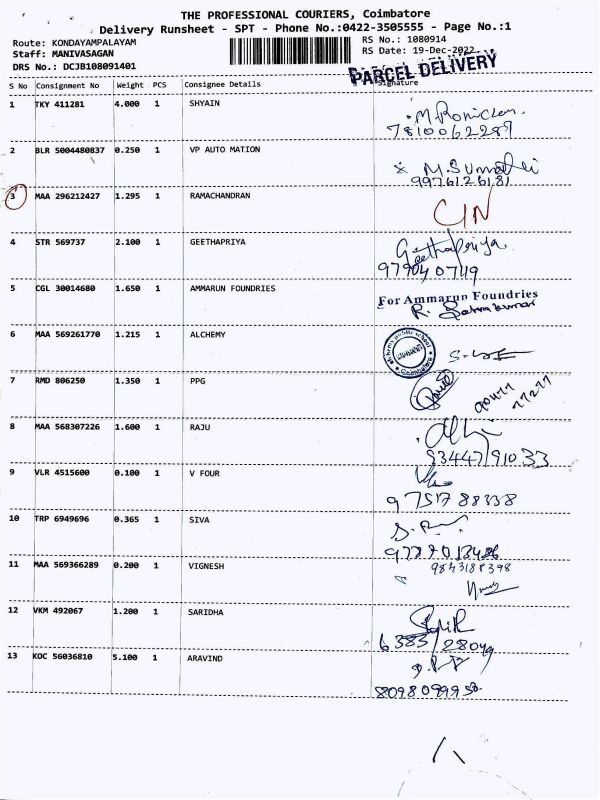 THE PROFESSIONAL COURIERS, Coimbatore
Delivery Runsheet - SPT - Phone No.:0422-3505555 - Page No.:1
Route: KONDAYAMPALAYAM
Staff: MANIVASAGAN
DRS No.: DCJB108091401
RS No.: 1080914
RS Date: 19-Dec-2022
PARCEL DELIVERY
S No Consignment No Weight PCS Consignee Details Signature
1 TKY 411281 4.000 1 SHYAIN
7810062287
2 BLR 5004480837 0.250 1 VP AUTO MATION
9976126181
3 MAA 296212427 1.295 1 RAMACHANDRAN
4 STR 569737 2.100 1 GEETHAPRIYA Geethapriya
9790407119
5 CGL 30014680 1.650 1 AMMARUN FOUNDRIES For Ammarun Foundries
6 MAA 569261770 1.215 1 ALCHEMY
7 RMD 806250 1.350 1 PPG
8 MAA 568307226 1.600 1 RAJU
9344791033
9 VLR 4515600 0.100 1 V FOUR
9751788338
10 TRP 6949696 0.365 1 SIVA
11 MAA 569366289 0.200 1 VIGNESH 9843188398
12 VKM 492067 1.200 1 SARIDHA
13 KOC 56036810 5.100 1 ARAVIND